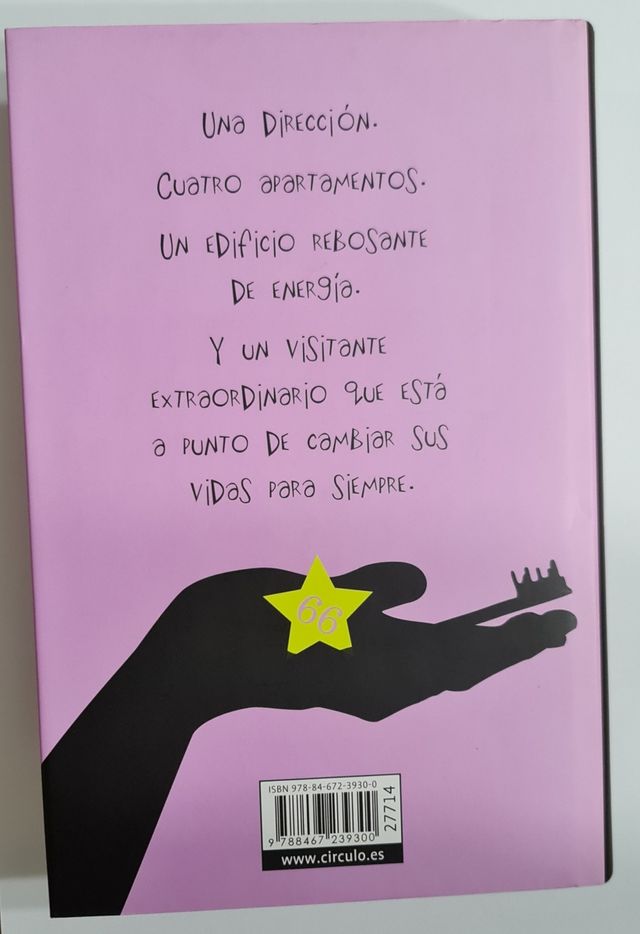 Una dirección.
Cuatro apartamentos.
Un edificio rebosante
de energía.
Y un visitante
extraordinario que está
a punto de cambiar sus
vidas para siempre.
66
ISBN 978-84-672-3930-0
9 788467 239300
27714
www.circulo.es